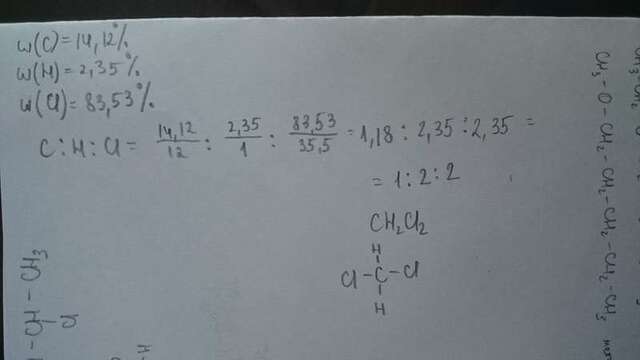 w(C)=14,12%
w(H)=2,35%
w(Cl)=83,53%
C:H:Cl= 14,12/12 : 2,35/1 : 83,53/35,5 =1,18 : 2,35 : 2,35 =
= 1:2:2
CH2Cl2
H
Cl-C-Cl
H
-CH-CH3
Cl
-H
CH3-CH2
CH3-O-CH2-CH2-CH2-CH2-CH3